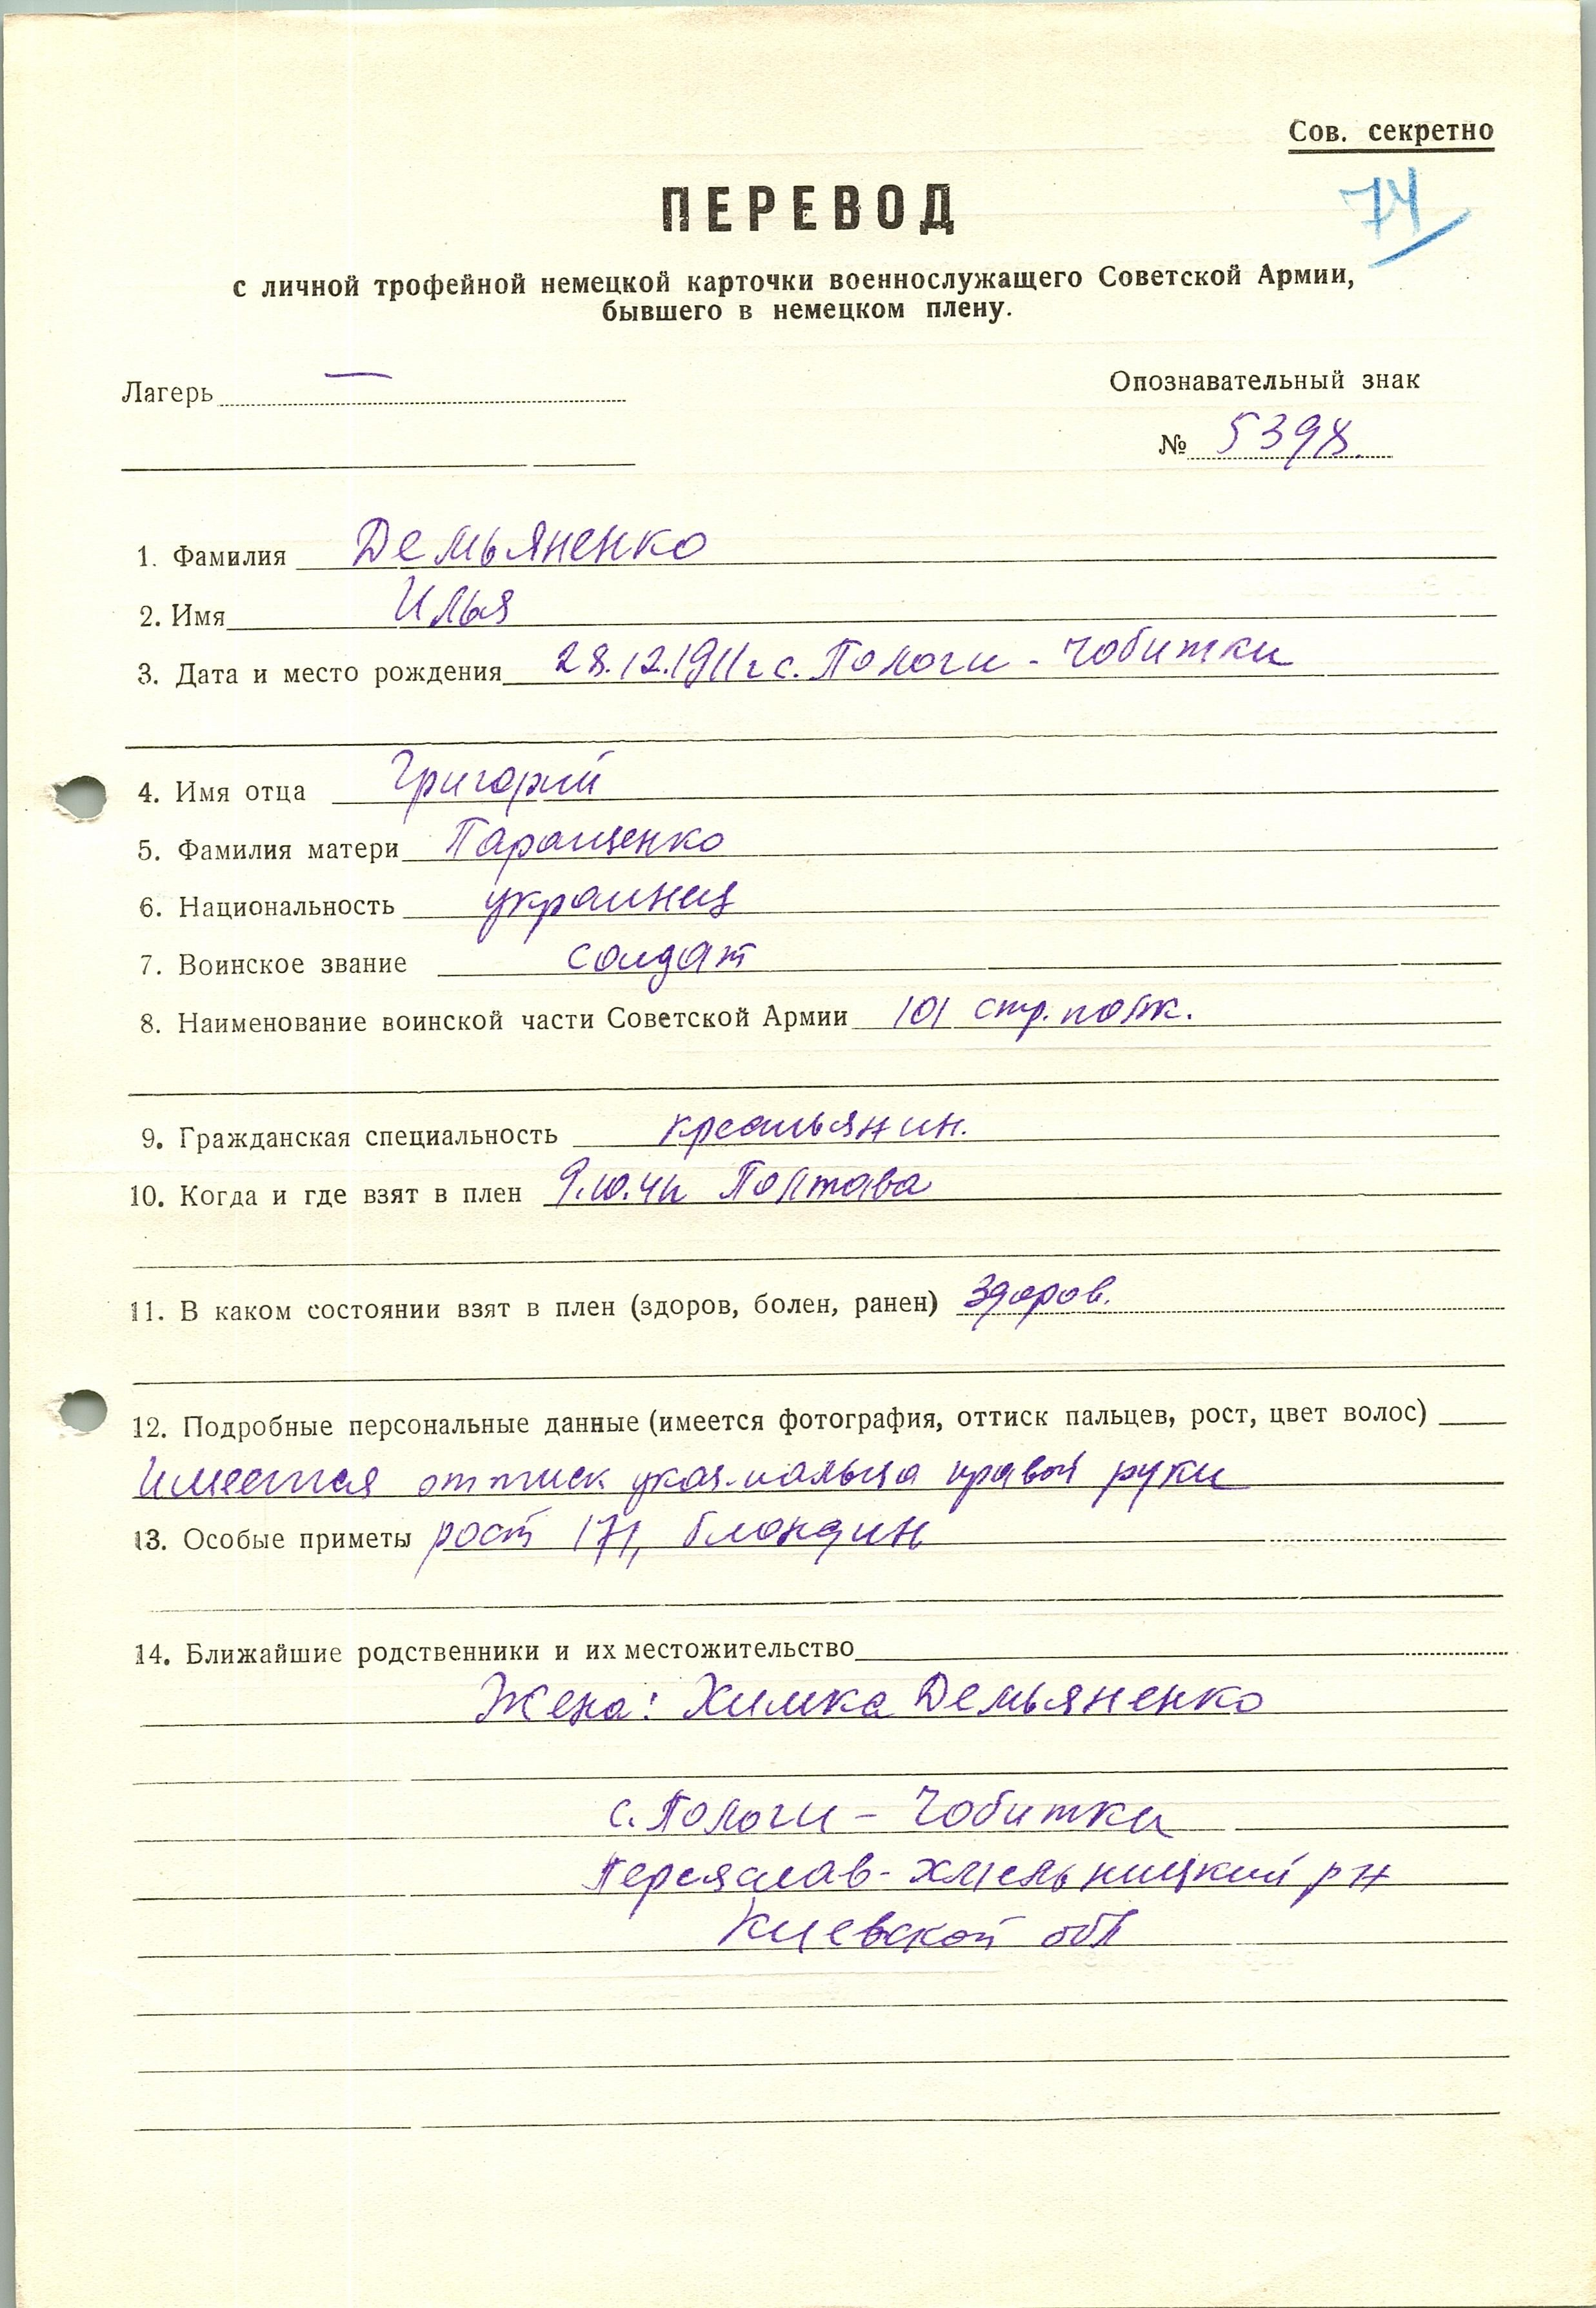 Сов. секретно
74
ПЕРЕВОД
с личной трофейной немецкой карточки военнослужащего Советской Армии,
бывшего в немецком плену.
Лагерь —
Опознавательный знак
№ 5398.
1. Фамилия Демьяненко
2. Имя Илья
3. Дата и место рождения 28.12.1911г с. Пологи - Чобитки
4. Имя отца Григорий
5. Фамилия матери Паращенко
6. Национальность украинец
7. Воинское звание солдат
8. Наименование воинской части Советской Армии 101 стр. полк.
9. Гражданская специальность крестьянин.
10. Когда и где взят в плен Полтава
11. В каком состоянии взят в плен (здоров, болен, ранен) здоров.
12. Подробные персональные данные (имеется фотография, оттиск пальцев, рост, цвет волос)
Имеется оттиск указ. пальца правой руки
13. Особые приметы рост 171, блондин
14. Ближайшие родственники и их местожительство
Жена: Химка Демьяненко
с. Пологи - Чобитки
Переяслав-Хмельницкий р-н
Киевской обл